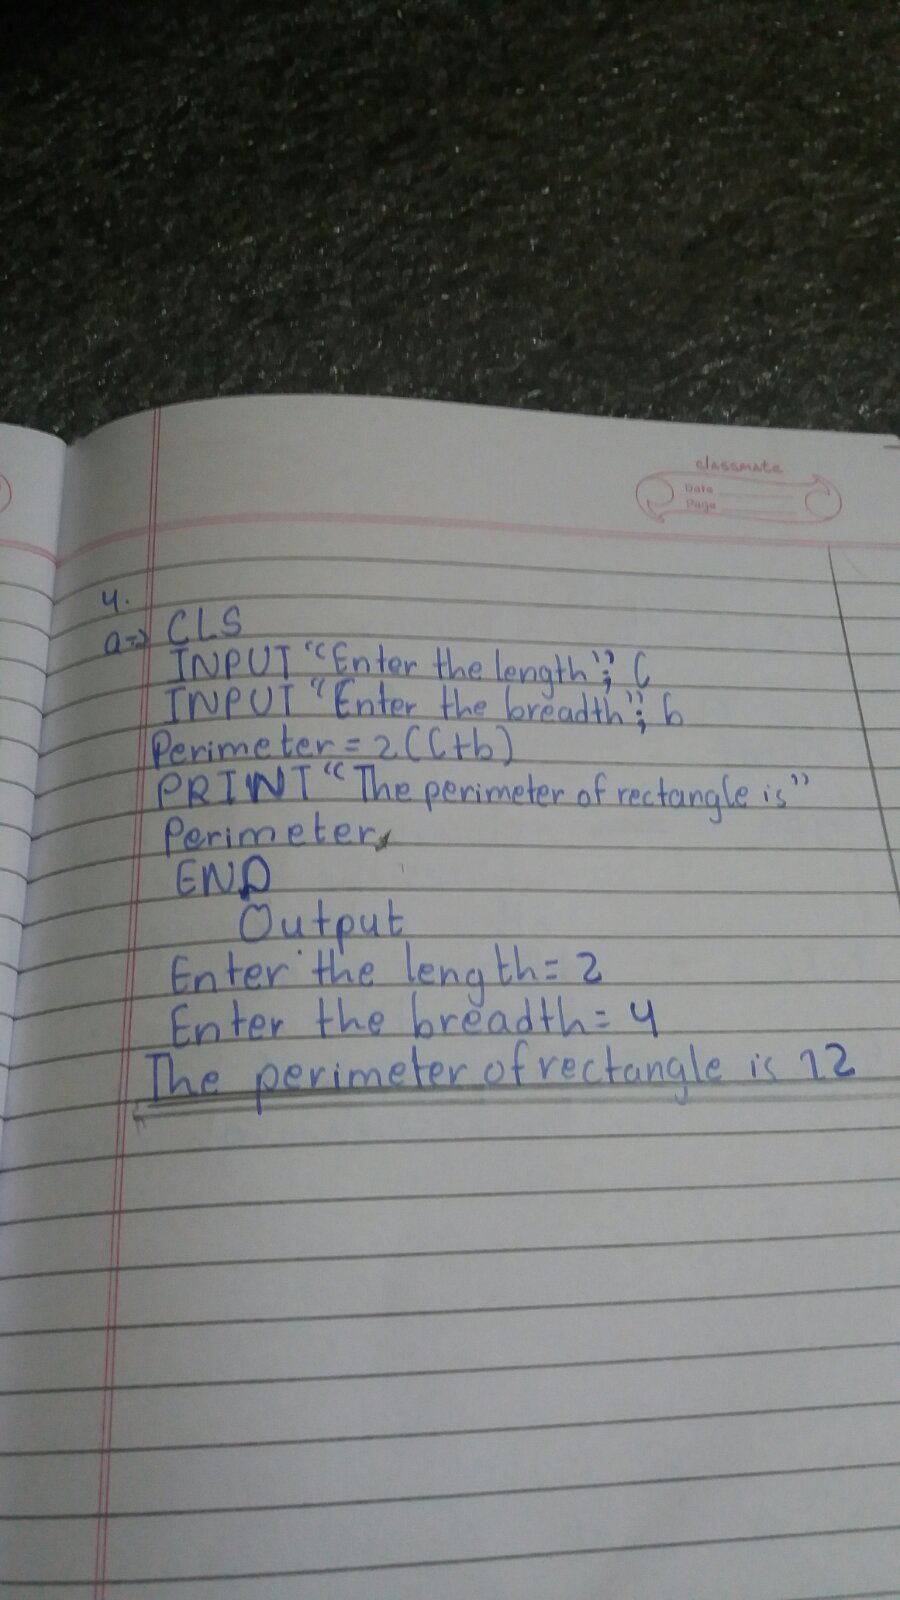 classmate
Date
Page
4.
a⇒ CLS
INPUT “Enter the length”; l
INPUT “Enter the breadth”; b
Perimeter = 2(l+b)
PRINT “The perimeter of rectangle is”
Perimeter
END
Output
Enter the length= 2
Enter the breadth= 4
The perimeter of rectangle is 12